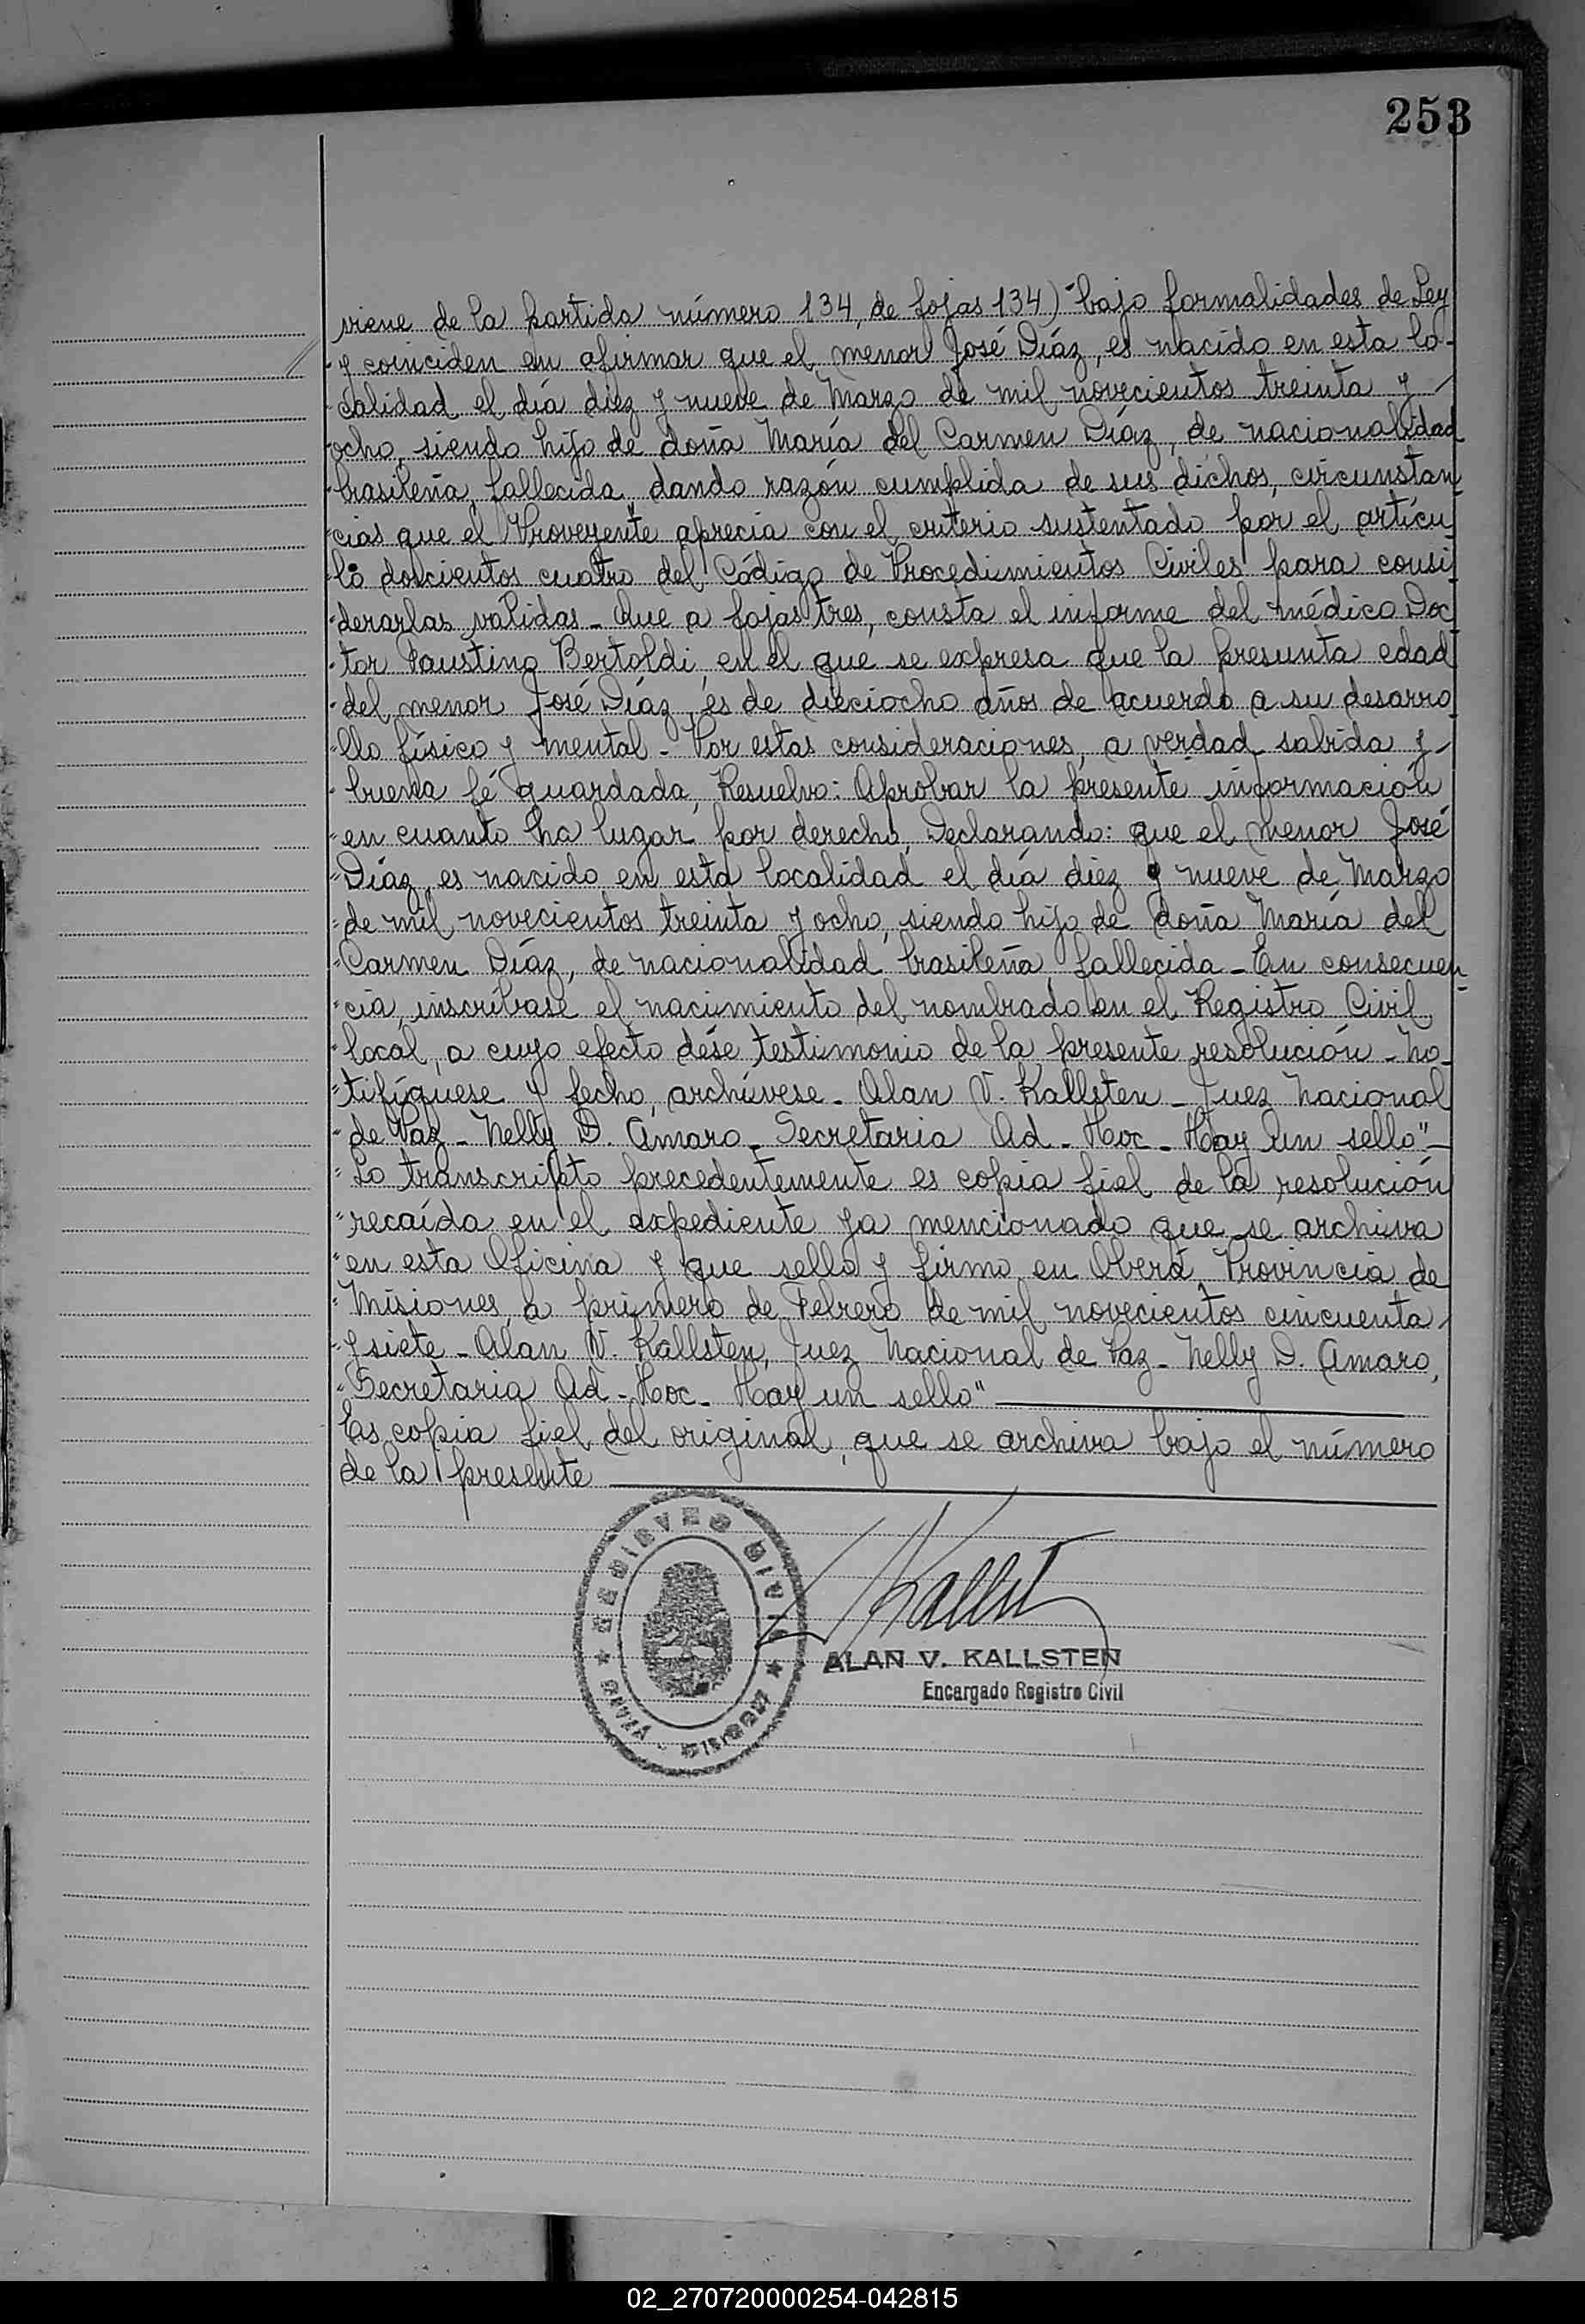 253
viene de la partida número 134, de fojas 134) "bajo formalidades de Ley
"y coinciden en afirmar que el menor José Díaz, es nacido en esta lo-
"calidad el día diez y nueve de Marzo de mil novecientos treinta y
"ocho, siendo hijo de doña María del Carmen Díaz, de nacionalidad
"brasileña, fallecida, dando razón cumplida de sus dichos, circunstan
"cias que el Proveyente aprecia con el criterio sustentado por el artícu
"lo doscientos cuatro del Código de Procedimientos Civiles para consi
"derarlas válidas - Que a fojas tres, consta el informe del médico Doc
"tor Faustino Bertoldi, en el que se expresa que la presunta edad
"del menor José Díaz, es de dieciocho años de acuerdo a su desarro
"llo físico y mental - Por estas consideraciones, a verdad sabida y
"buena fé guardada, Resuelvo: Aprobar la presente información
"en cuanto ha lugar por derecho, Declarando: que el menor José
"Díaz, es nacido en esta localidad el día diez y nueve de Marzo
"de mil novecientos treinta y ocho, siendo hijo de doña María del
"Carmen Díaz, de nacionalidad brasileña fallecida - En consecuen-
"cia, inscríbase el nacimiento del nombrado en el Registro Civil
"local, a cuyo efecto dése testimonio de la presente resolución - No-
"tifíquese y fecho, archívese - Alan V. Kallsten - Juez Nacional
"de Paz - Nelly D. Amaro - Secretaria Ad-Hoc - Hay un sello" -
"Lo transcripto precedentemente es copia fiel de la resolución
"recaída en el expediente ya mencionado que se archiva
"en esta Oficina y que sello y firmo en Oberá, Provincia de
"Misiones, a primero de Febrero de mil novecientos cincuenta
"y siete - Alan V. Kallsten, Juez Nacional de Paz - Nelly D. Amaro,
"Secretaria Ad-Hoc - Hay un sello"
Es copia fiel del original, que se archiva bajo el número
de la presente
REGISTRO CIVIL
OBERÁ - MISIONES
Kallst
ALAN V. KALLSTEN
Encargado Registro Civil
02_270720000254-042815